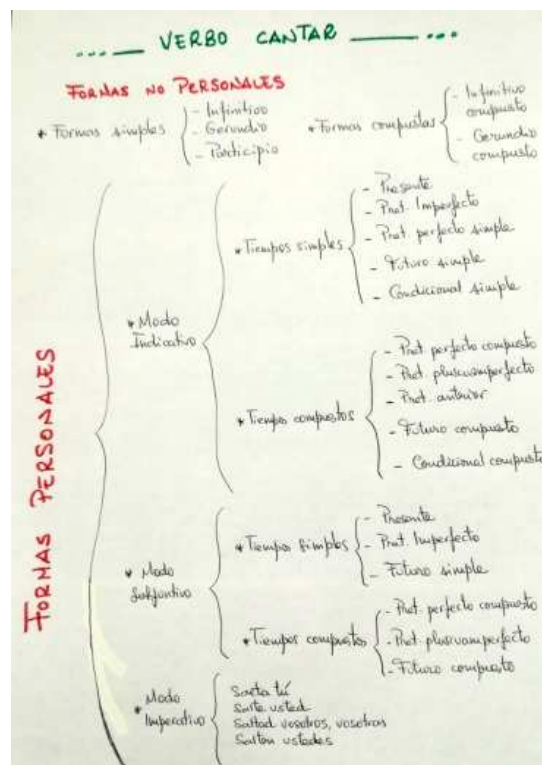 VERBO CANTAR
FORMAS NO PERSONALES
* Formas simples
- Infinitivo
- Gerundio
- Participio
* Formas compuestas
- Infinitivo
compuesto
- Gerundio
compuesto
FORMAS PERSONALES
* Modo
Indicativo
* Tiempos simples
- Presente
- Pret. Imperfecto
- Pret perfecto simple
- Futuro simple
- Condicional simple
* Tiempos compuestos
- Pret perfecto compuesto
- Pret. pluscuamperfecto
- Pret. anterior
- Futuro compuesto
- Condicional compuesto
* Modo
Subjuntivo
* Tiempos simples
- Presente
- Pret. Imperfecto
- Futuro simple
* Tiempos compuestos
- Pret. perfecto compuesto
- Pret. pluscuamperfecto
- Futuro compuesto
* Modo
Imperativo
Salta tú
Salte usted
Saltad vosotros, vosotras
Salten ustedes